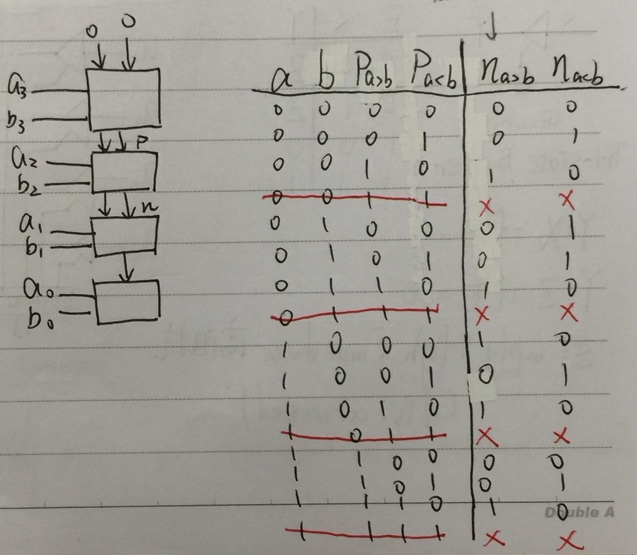 0 0
a3
b3
P
a2
b2
n
a1
b1
a0
b0
a b Pa>b Pa<b na>b na<b
0 0 0 0 0 0
0 0 0 1 0 1
0 0 1 0 1 0
0 0 1 1 x x
0 1 0 0 0 1
0 1 0 1 0 1
0 1 1 0 1 0
0 1 1 1 x x
1 0 0 0 1 0
1 0 0 1 0 1
1 0 1 0 1 0
1 0 1 1 x x
1 1 0 0 0 0
1 1 0 1 0 1
1 1 1 0 1 0
1 1 1 1 x x
Double A